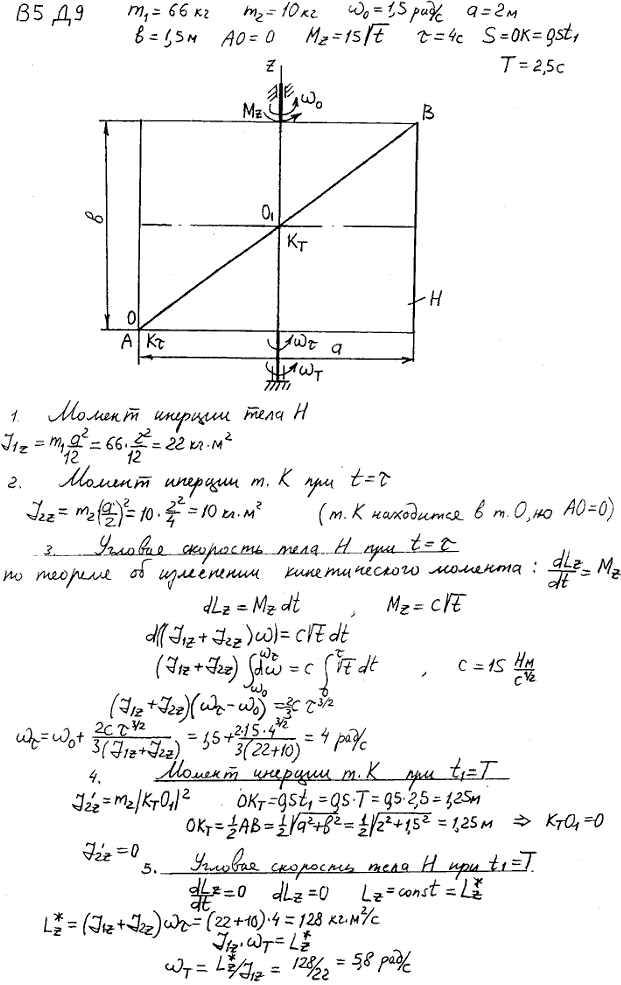 В5 Д9 m₁ = 66 кг m₂ = 10 кг ω₀ = 1,5 рад/с a = 2 м
в = 1,5 м АО = 0 Mz = 15√t τ = 4 с S = OK = 0,5t₁
T = 2,5 с
z
Mz ω₀
B
в
O₁
K_T
H
O
A K_τ
ω_τ
a
ω_T
1. Момент инерции тела Н
J₁z = m₁ a²/12 = 66·2²/12 = 22 кг·м²
2. Момент инерции т. К при t = τ
J₂z = m₂(a/2)² = 10·2²/4 = 10 кг·м² (т. К находится в т. О, но АО = 0)
3. Угловая скорость тела Н при t = τ
по теореме об изменении кинетического момента: dLz/dt = Mz
dLz = Mz dt , Mz = C√t
d((J₁z + J₂z)ω) = C√t dt
(J₁z + J₂z) ∫_ω₀^ω_τ dω = C ∫_0^τ √t dt , C = 15 Нм/с^1/2
(J₁z + J₂z)(ω_τ − ω₀) = 2/3 C τ^3/2
ω_τ = ω₀ + 2C τ^3/2 / 3(J₁z + J₂z) = 1,5 + 2·15·4^3/2 / 3(22 + 10) = 4 рад/с
4. Момент инерции т. К при t₁ = T
J'₂z = m₂|K_TO₁|² OK_T = 0,5t₁ = 0,5·T = 0,5·2,5 = 1,25 м
OK_T = 1/2 AB = 1/2 √a² + в² = 1/2 √2² + 1,5² = 1,25 м ⇒ K_TO₁ = 0
J'₂z = 0
5. Угловая скорость тела Н при t₁ = T.
dLz/dt = 0 dLz = 0 Lz = const = Lz*
Lz* = (J₁z + J₂z)ω_τ = (22 + 10)·4 = 128 кг·м²/с
J₁z·ω_T = Lz*
ω_T = Lz*/J₁z = 128/22 = 5,8 рад/с